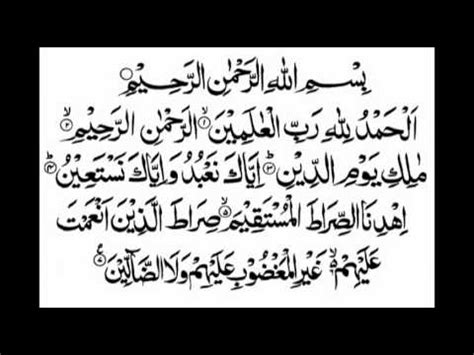 بِسْمِ اللهِ الرَّحْمٰنِ الرَّحِيْمِ
اَلْحَمْدُ لِلّٰهِ رَبِّ الْعٰلَمِيْنَ ۙ۱ الرَّحْمٰنِ الرَّحِيْمِ ۙ۲
مٰلِكِ يَوْمِ الدِّيْنِ ؕ۳ اِيَّاكَ نَعْبُدُ وَاِيَّاكَ نَسْتَعِيْنُ ؕ۴
اِهْدِنَا الصِّرَاطَ الْمُسْتَقِيْمَ ۙ۵ صِرَاطَ الَّذِيْنَ اَنْعَمْتَ
عَلَيْهِمْ ۙ۬ غَيْرِ الْمَغْضُوْبِ عَلَيْهِمْ وَلَا الضَّآلِّيْنَ